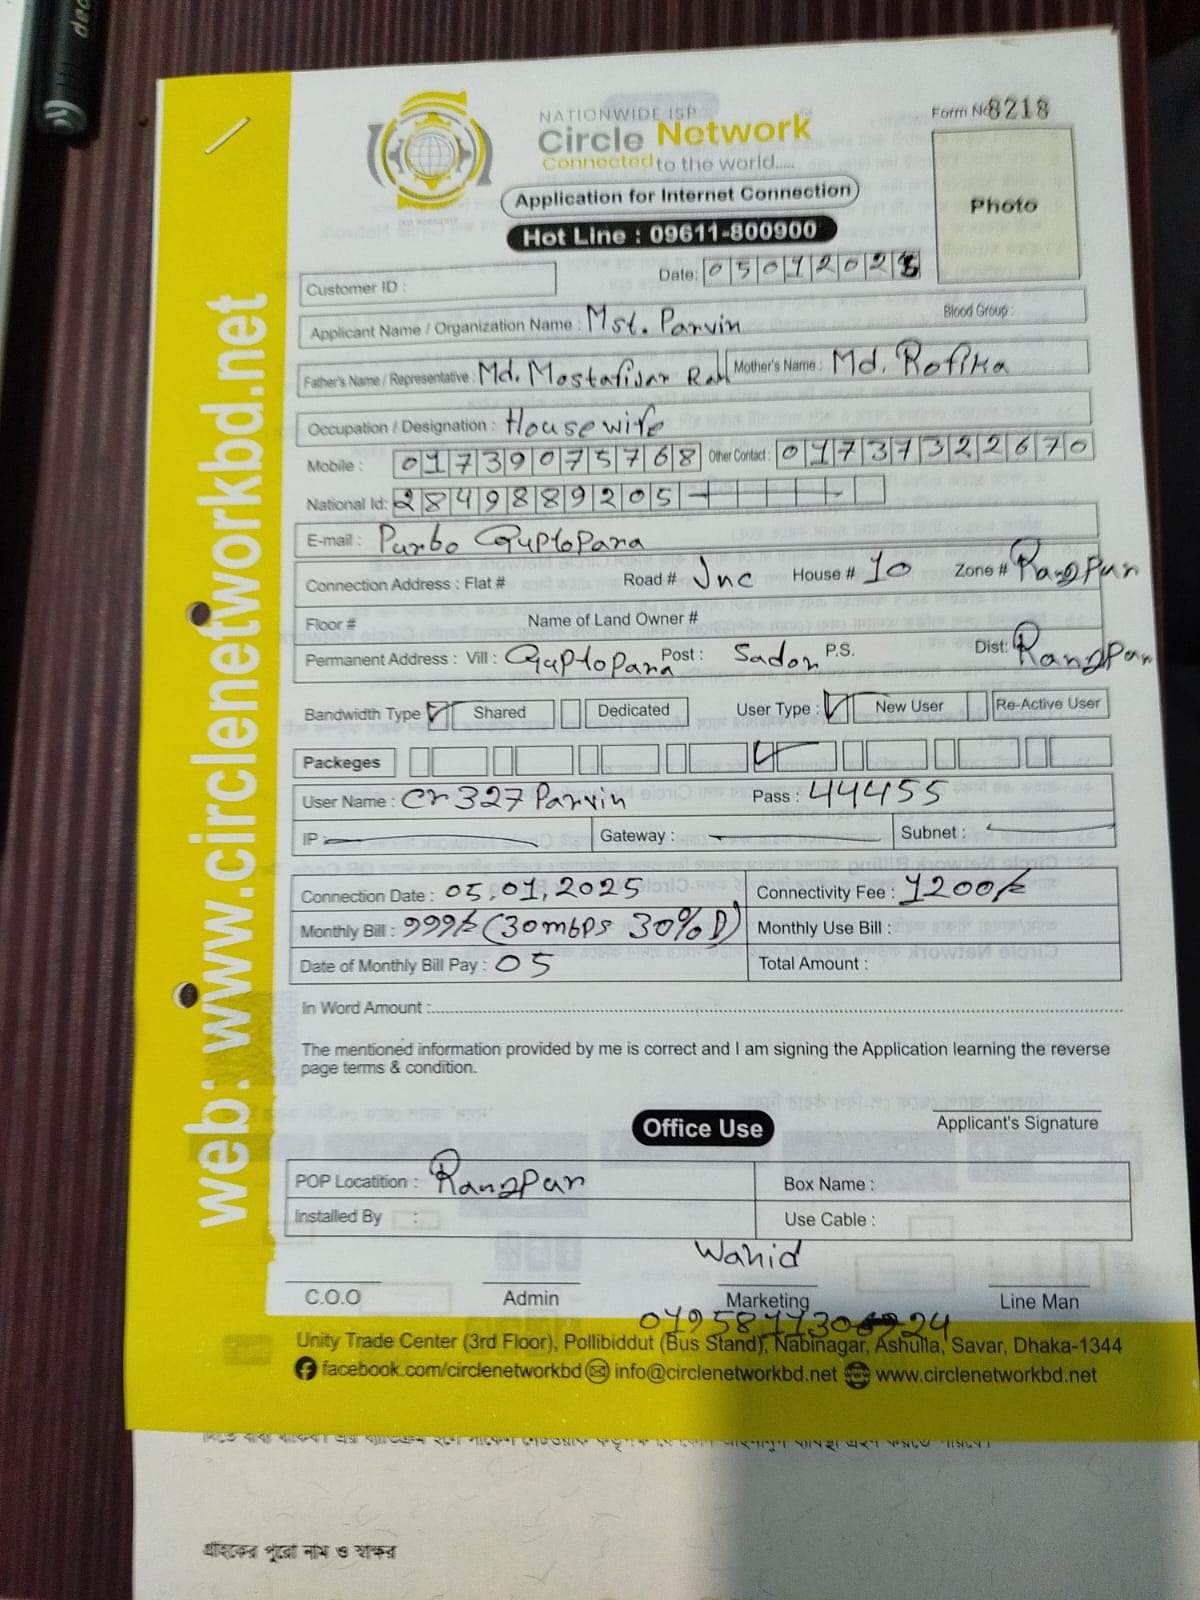 NATIONWIDE ISP
Circle Network
Connected to the world.....
Form No 8218
Photo
Application for Internet Connection
Hot Line : 09611-800900
Date: 05012025
Customer ID :
Applicant Name / Organization Name : Mst. Parvin
Blood Group :
Father's Name / Representative : Md. Mostafijar Rah Mother's Name : Md. Rofika
Occupation / Designation : Housewife
Mobile : 01739075768 Other Contact : 01737322670
National Id: 2849889205
E-mail : Purbo Guptopara
Connection Address : Flat # Road # Jnc House # 10 Zone # Rangpur
Floor # Name of Land Owner #
Permanent Address : Vill : Guptopara Post : Sador P.S. Dist: Rangpur
Bandwidth Type Shared Dedicated User Type : New User Re-Active User
Packeges
User Name : Cr327Parvin Pass : 44455
IP : Gateway : Subnet :
Connection Date : 05,01,2025 Connectivity Fee : 1200/=
Monthly Bill : 999/= (30mbps 30% D) Monthly Use Bill :
Date of Monthly Bill Pay : 05 Total Amount :
In Word Amount :
The mentioned information provided by me is correct and I am signing the Application learning the reverse
page terms & condition.
Applicant's Signature
Office Use
POP Locatition : Rangpur Box Name :
Installed By : Use Cable :
Wahid
C.O.O Admin Marketing Line Man
Unity Trade Center (3rd Floor), Pollibiddut (Bus Stand), Nabinagar, Ashulla, Savar, Dhaka-1344
facebook.com/circlenetworkbd info@circlenetworkbd.net www.circlenetworkbd.net
web: www.circlenetworkbd.net
গ্রাহকের পুরো নাম ও স্বাক্ষর